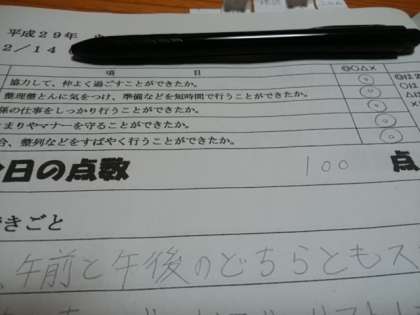 平成29年
2/14
項 目 ◎○△×
協力して、仲よく過ごすことができたか。 ◎
整理整とんに気をつけ、準備などを短時間で行うことができたか。 ◎
係の仕事をしっかり行うことができたか。 ◎
まりやマナーを守ることができたか。 ◎
合、整列などをすばやく行うことができたか。 ◎
今日の点数 100 点
きごと
午前と午後のどちらともス